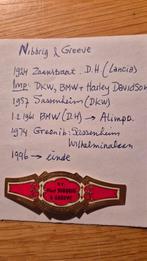 Nibbrig & Greeve
1924 Zaanstraat. D.H (Lancia)
Imp: DKW, BMW + Harley Davidson
1957 Sassenheim (DKW)
1.2.1961 BMW (DH) → Alimpo.
1974 Groenib: Sassenheim
Wilhelminalaan
1996 → einde
N.V.
NIBBRIG
& GREEVE